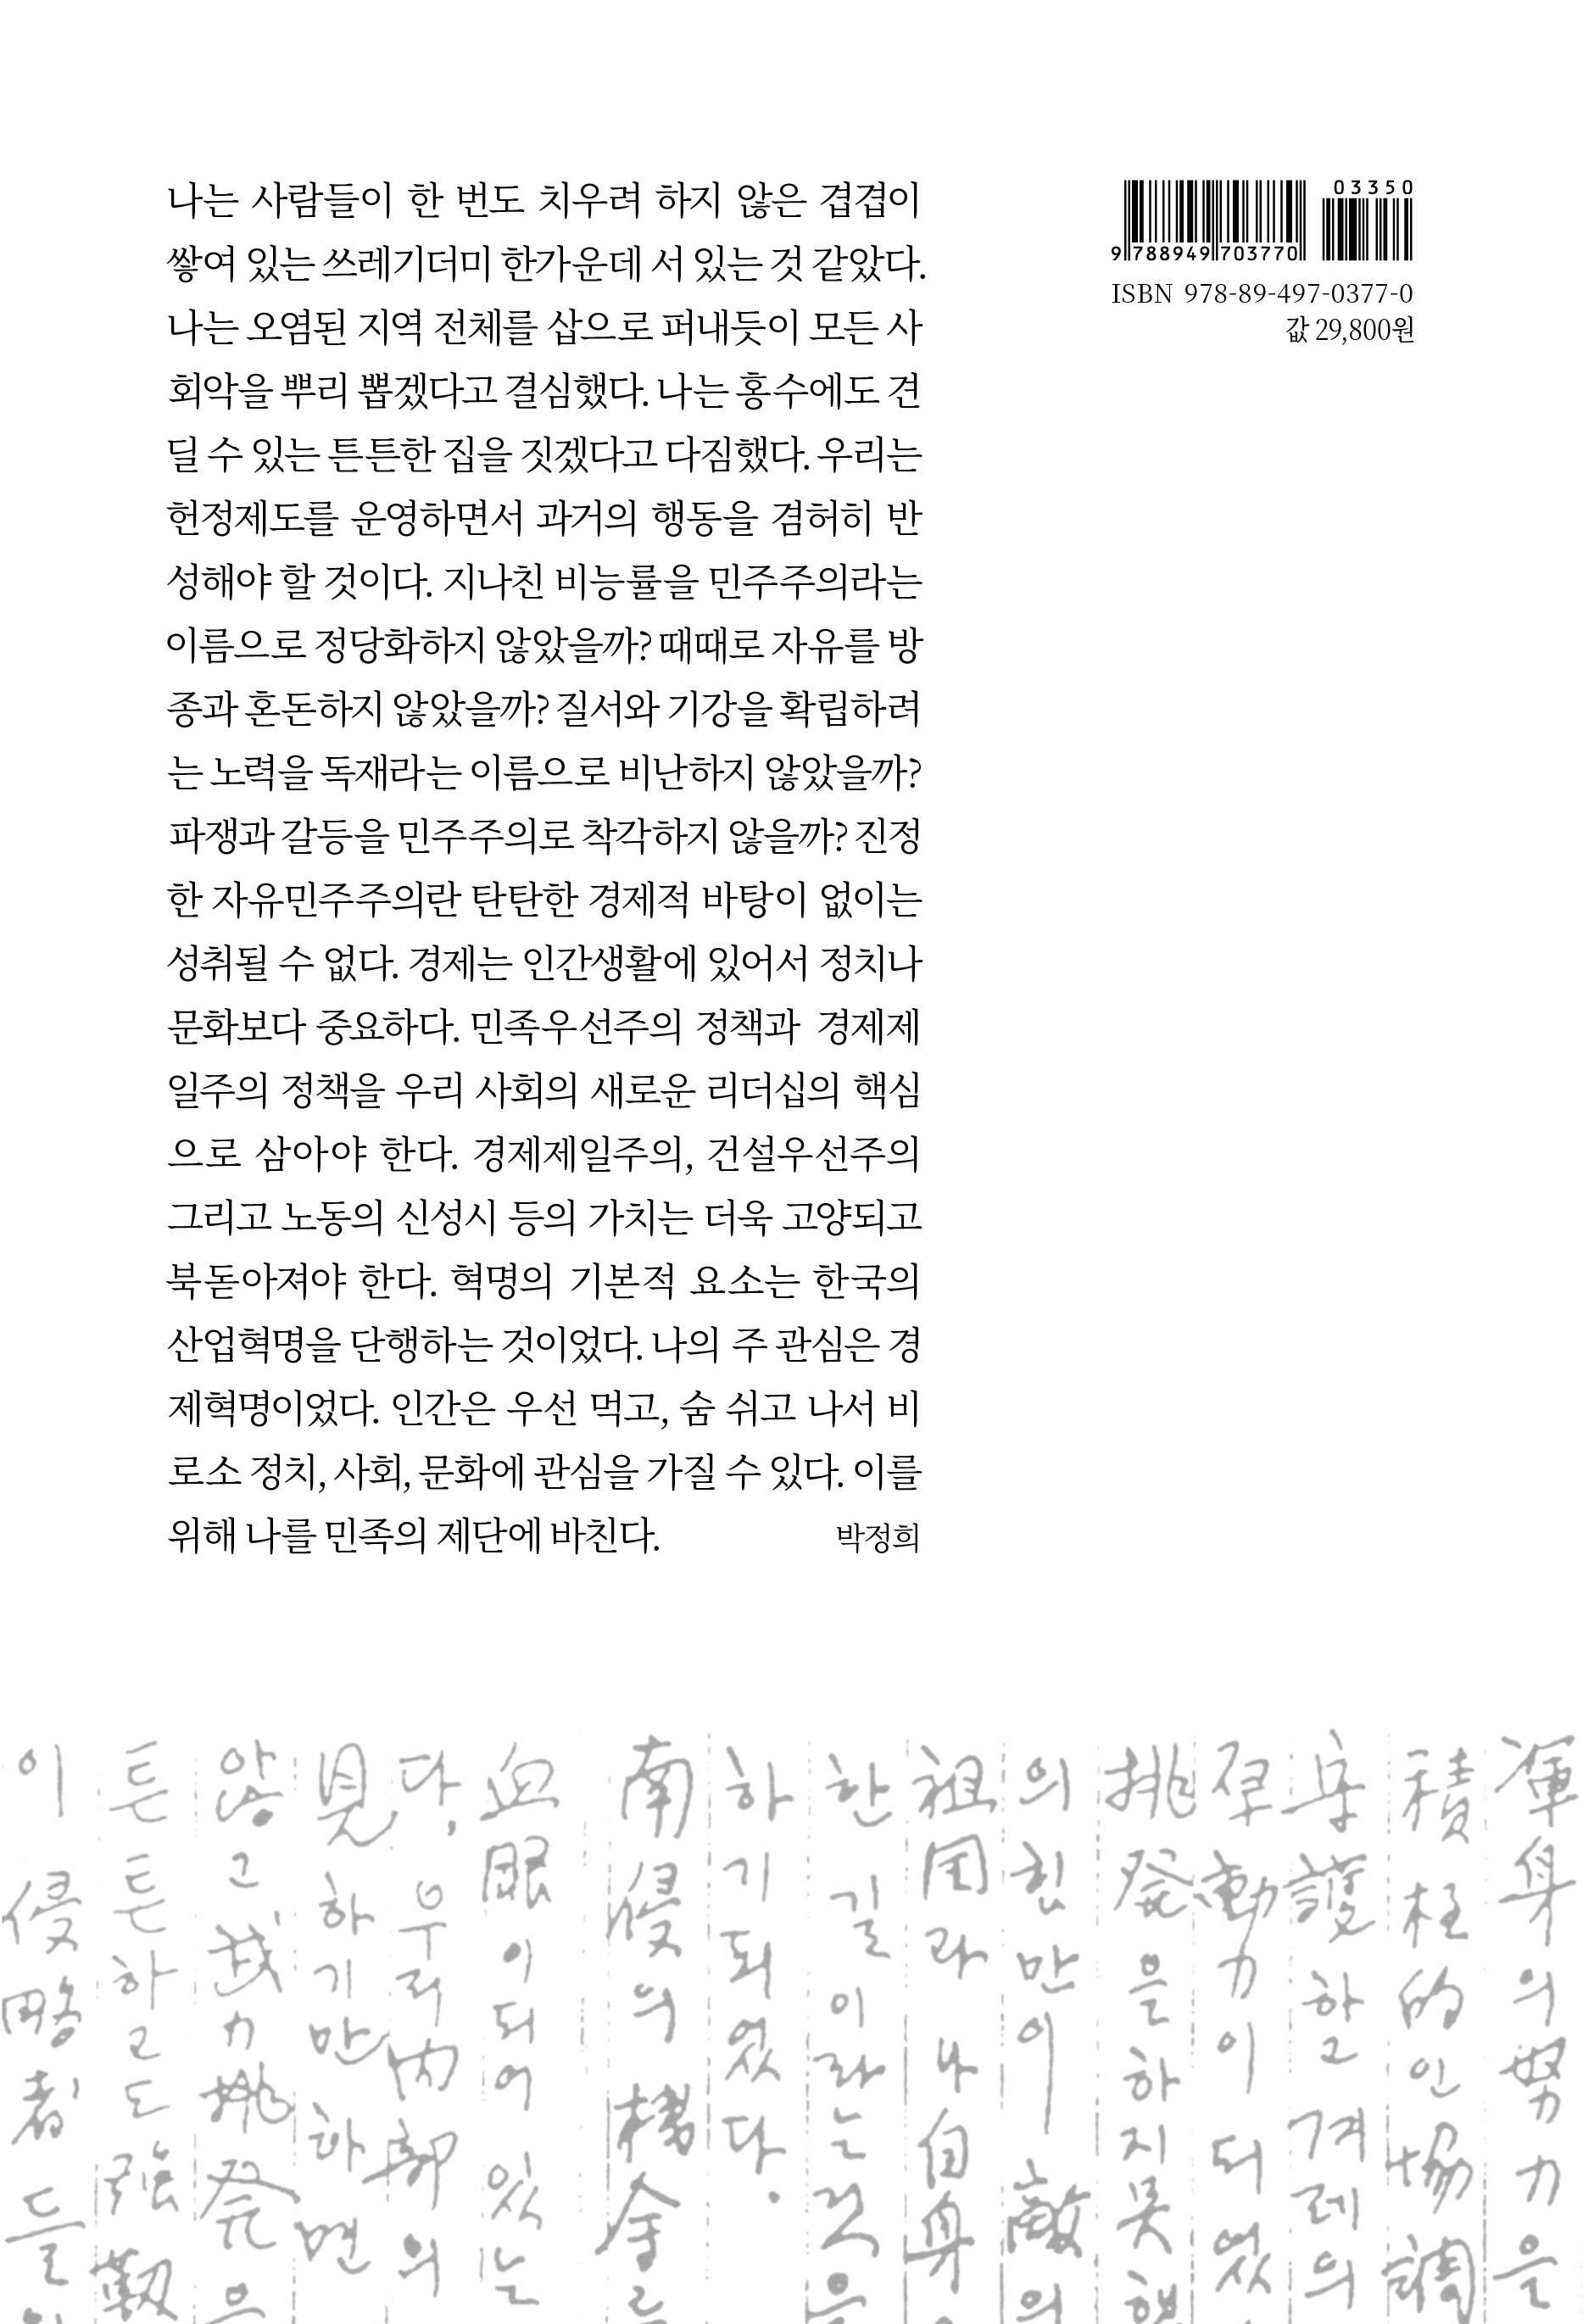 나는 사람들이 한 번도 치우려 하지 않은 겹겹이
쌓여 있는 쓰레기더미 한가운데 서 있는 것 같았다.
나는 오염된 지역 전체를 삽으로 퍼내듯이 모든 사
회악을 뿌리 뽑겠다고 결심했다. 나는 홍수에도 견
딜 수 있는 튼튼한 집을 짓겠다고 다짐했다. 우리는
헌정제도를 운영하면서 과거의 행동을 겸허히 반
성해야 할 것이다. 지나친 비능률을 민주주의라는
이름으로 정당화하지 않았을까? 때때로 자유를 방
종과 혼돈하지 않았을까? 질서와 기강을 확립하려
는 노력을 독재라는 이름으로 비난하지 않았을까?
파쟁과 갈등을 민주주의로 착각하지 않을까? 진정
한 자유민주주의란 탄탄한 경제적 바탕이 없이는
성취될 수 없다. 경제는 인간생활에 있어서 정치나
문화보다 중요하다. 민족우선주의 정책과 경제제
일주의 정책을 우리 사회의 새로운 리더십의 핵심
으로 삼아야 한다. 경제제일주의, 건설우선주의
그리고 노동의 신성시 등의 가치는 더욱 고양되고
북돋아져야 한다. 혁명의 기본적 요소는 한국의
산업혁명을 단행하는 것이었다. 나의 주 관심은 경
제혁명이었다. 인간은 우선 먹고, 숨 쉬고 나서 비
로소 정치, 사회, 문화에 관심을 가질 수 있다. 이를
위해 나를 민족의 제단에 바친다.
박정희
03350
9 788949 703770
ISBN 978-89-497-0377-0
값 29,800원
渾身의 努力을
積極的인 協調
守護하고 겨레의
原動力이 되었
挑發을 하지 못
의 힌만이 敵의
祖国과 나 自身
한 길이라는 것을
하기 되었다.
南侵의 機会를
血眼이 되어 있는
다. 우리 内部의
見하기만 하면
않고 挑発을
튼튼하고도 強靱
이 侵略者들